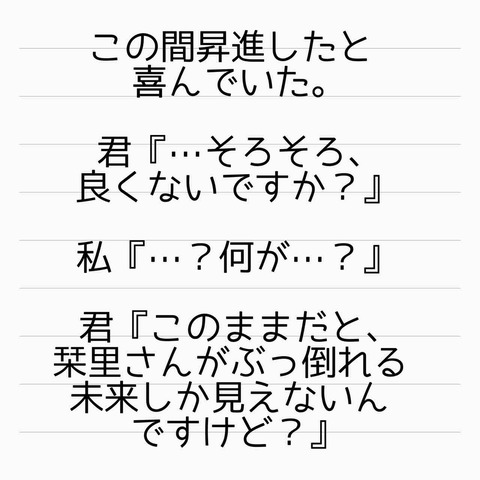 この間昇進したと
喜んでいた。
君『…そろそろ、
良くないですか？』
私『…？何が…？』
君『このままだと、
栞里さんがぶっ倒れる
未来しか見えないん
ですけど？』